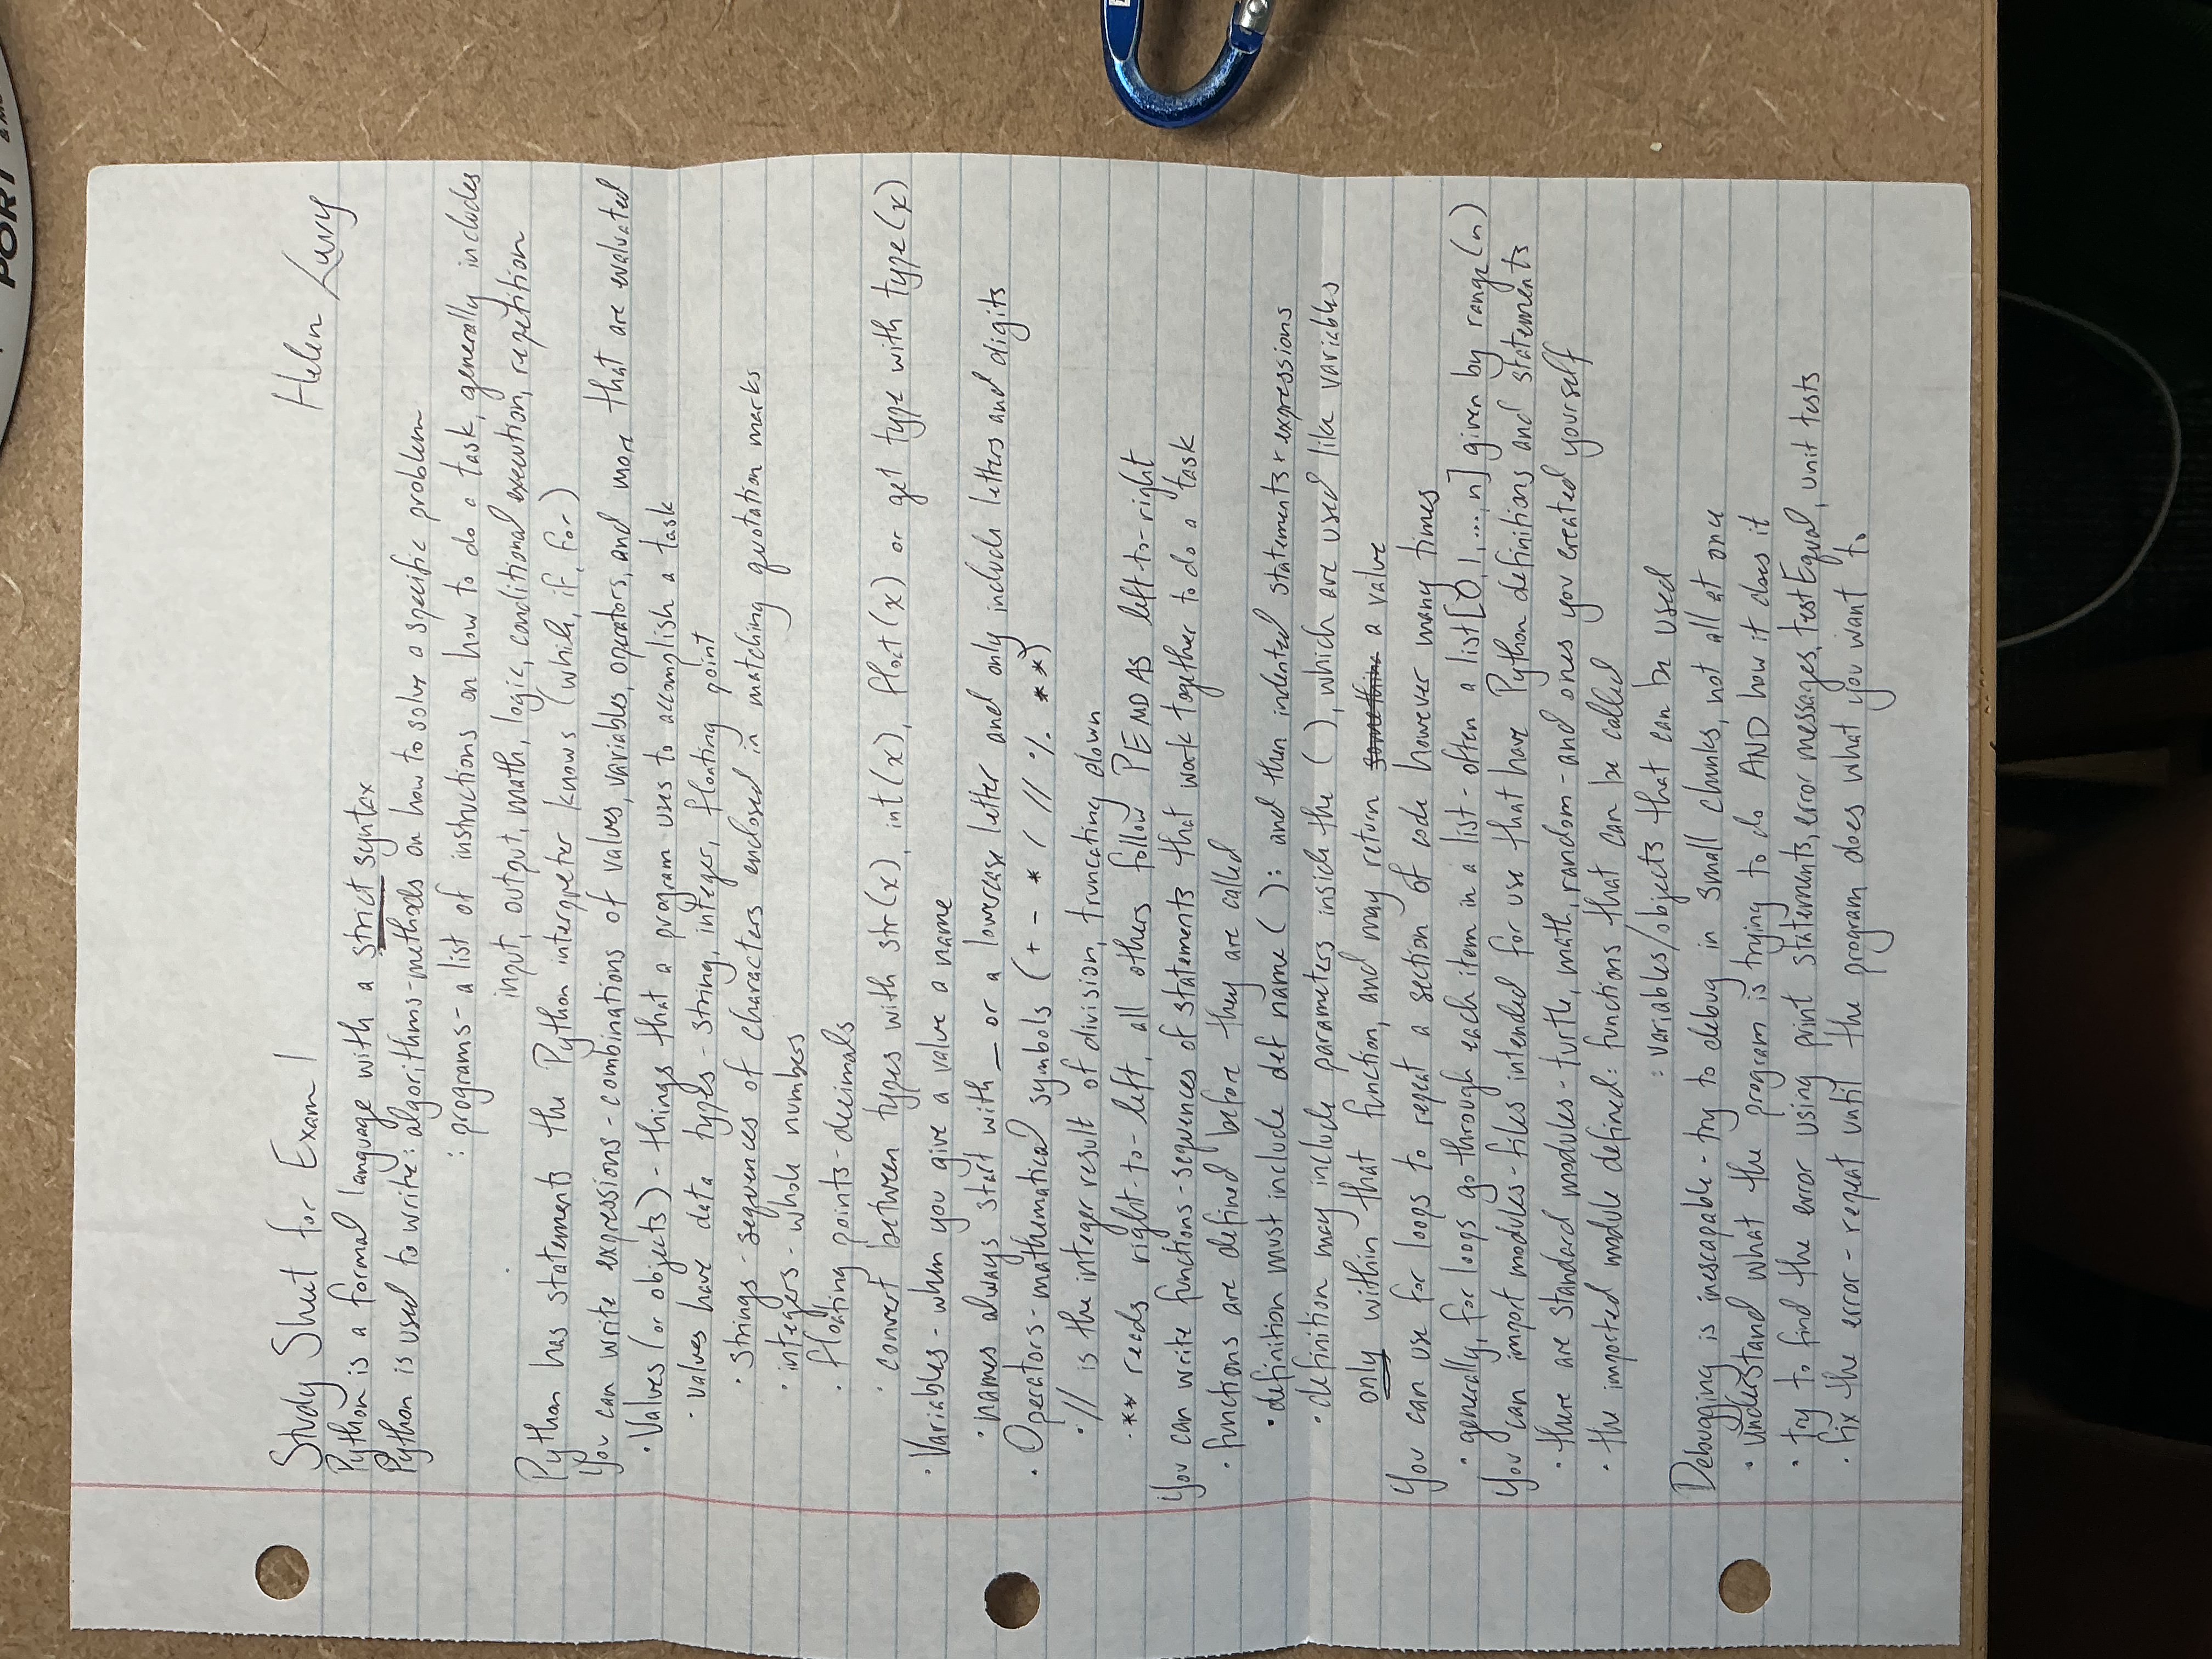 PORT
Study Sheet for Exam 1
Helen
Python is a formal language with a strict syntax
Python is used to write: algorithms - methods on how to solve a specific problem
: programs - a list of instructions on how to do a task, generally includes
input, output, math, logic, conditional execution, repetition
Python has statements the Python interpreter knows (while, if, for)
You can write expressions - combinations of values, variables, operators, and more that are evaluated
· Values (or objects) - things that a program uses to accomplish a task
· values have data types - string, integer, floating point
· strings - sequences of characters enclosed in matching quotation marks
· integers - whole numbers
· floating points - decimals
· convert between types with str(x), int(x), float(x) or get type with type(x)
· Variables - when you give a value a name
· names always start with _ or a lowercase letter and only include letters and digits
· Operators - mathematical symbols (+ - * / // % **)
· // is the integer result of division, truncating down
· ** reads right-to-left, all others follow PEMDAS left-to-right
You can write functions - sequences of statements that work together to do a task
· functions are defined before they are called
· definition must include def name ( ): and then indented statements + expressions
· definition may include parameters inside the ( ), which are used like variables
only within that function, and may return something a value
You can use for loops to repeat a section of code however many times
· generally, for loops go through each item in a list - often a list [0, 1, ..., n] given by range(n)
You can import modules - files intended for use that have Python definitions and statements
· there are standard modules - turtle, math, random - and ones you created yourself
· the imported module defined: functions that can be called
: variables/objects that can be used
Debugging is inescapable - try to debug in small chunks, not all at once
· understand what the program is trying to do AND how it does it
· try to find the error using print statements, error messages, testEqual, unit tests
· fix the error - repeat until the program does what you want to